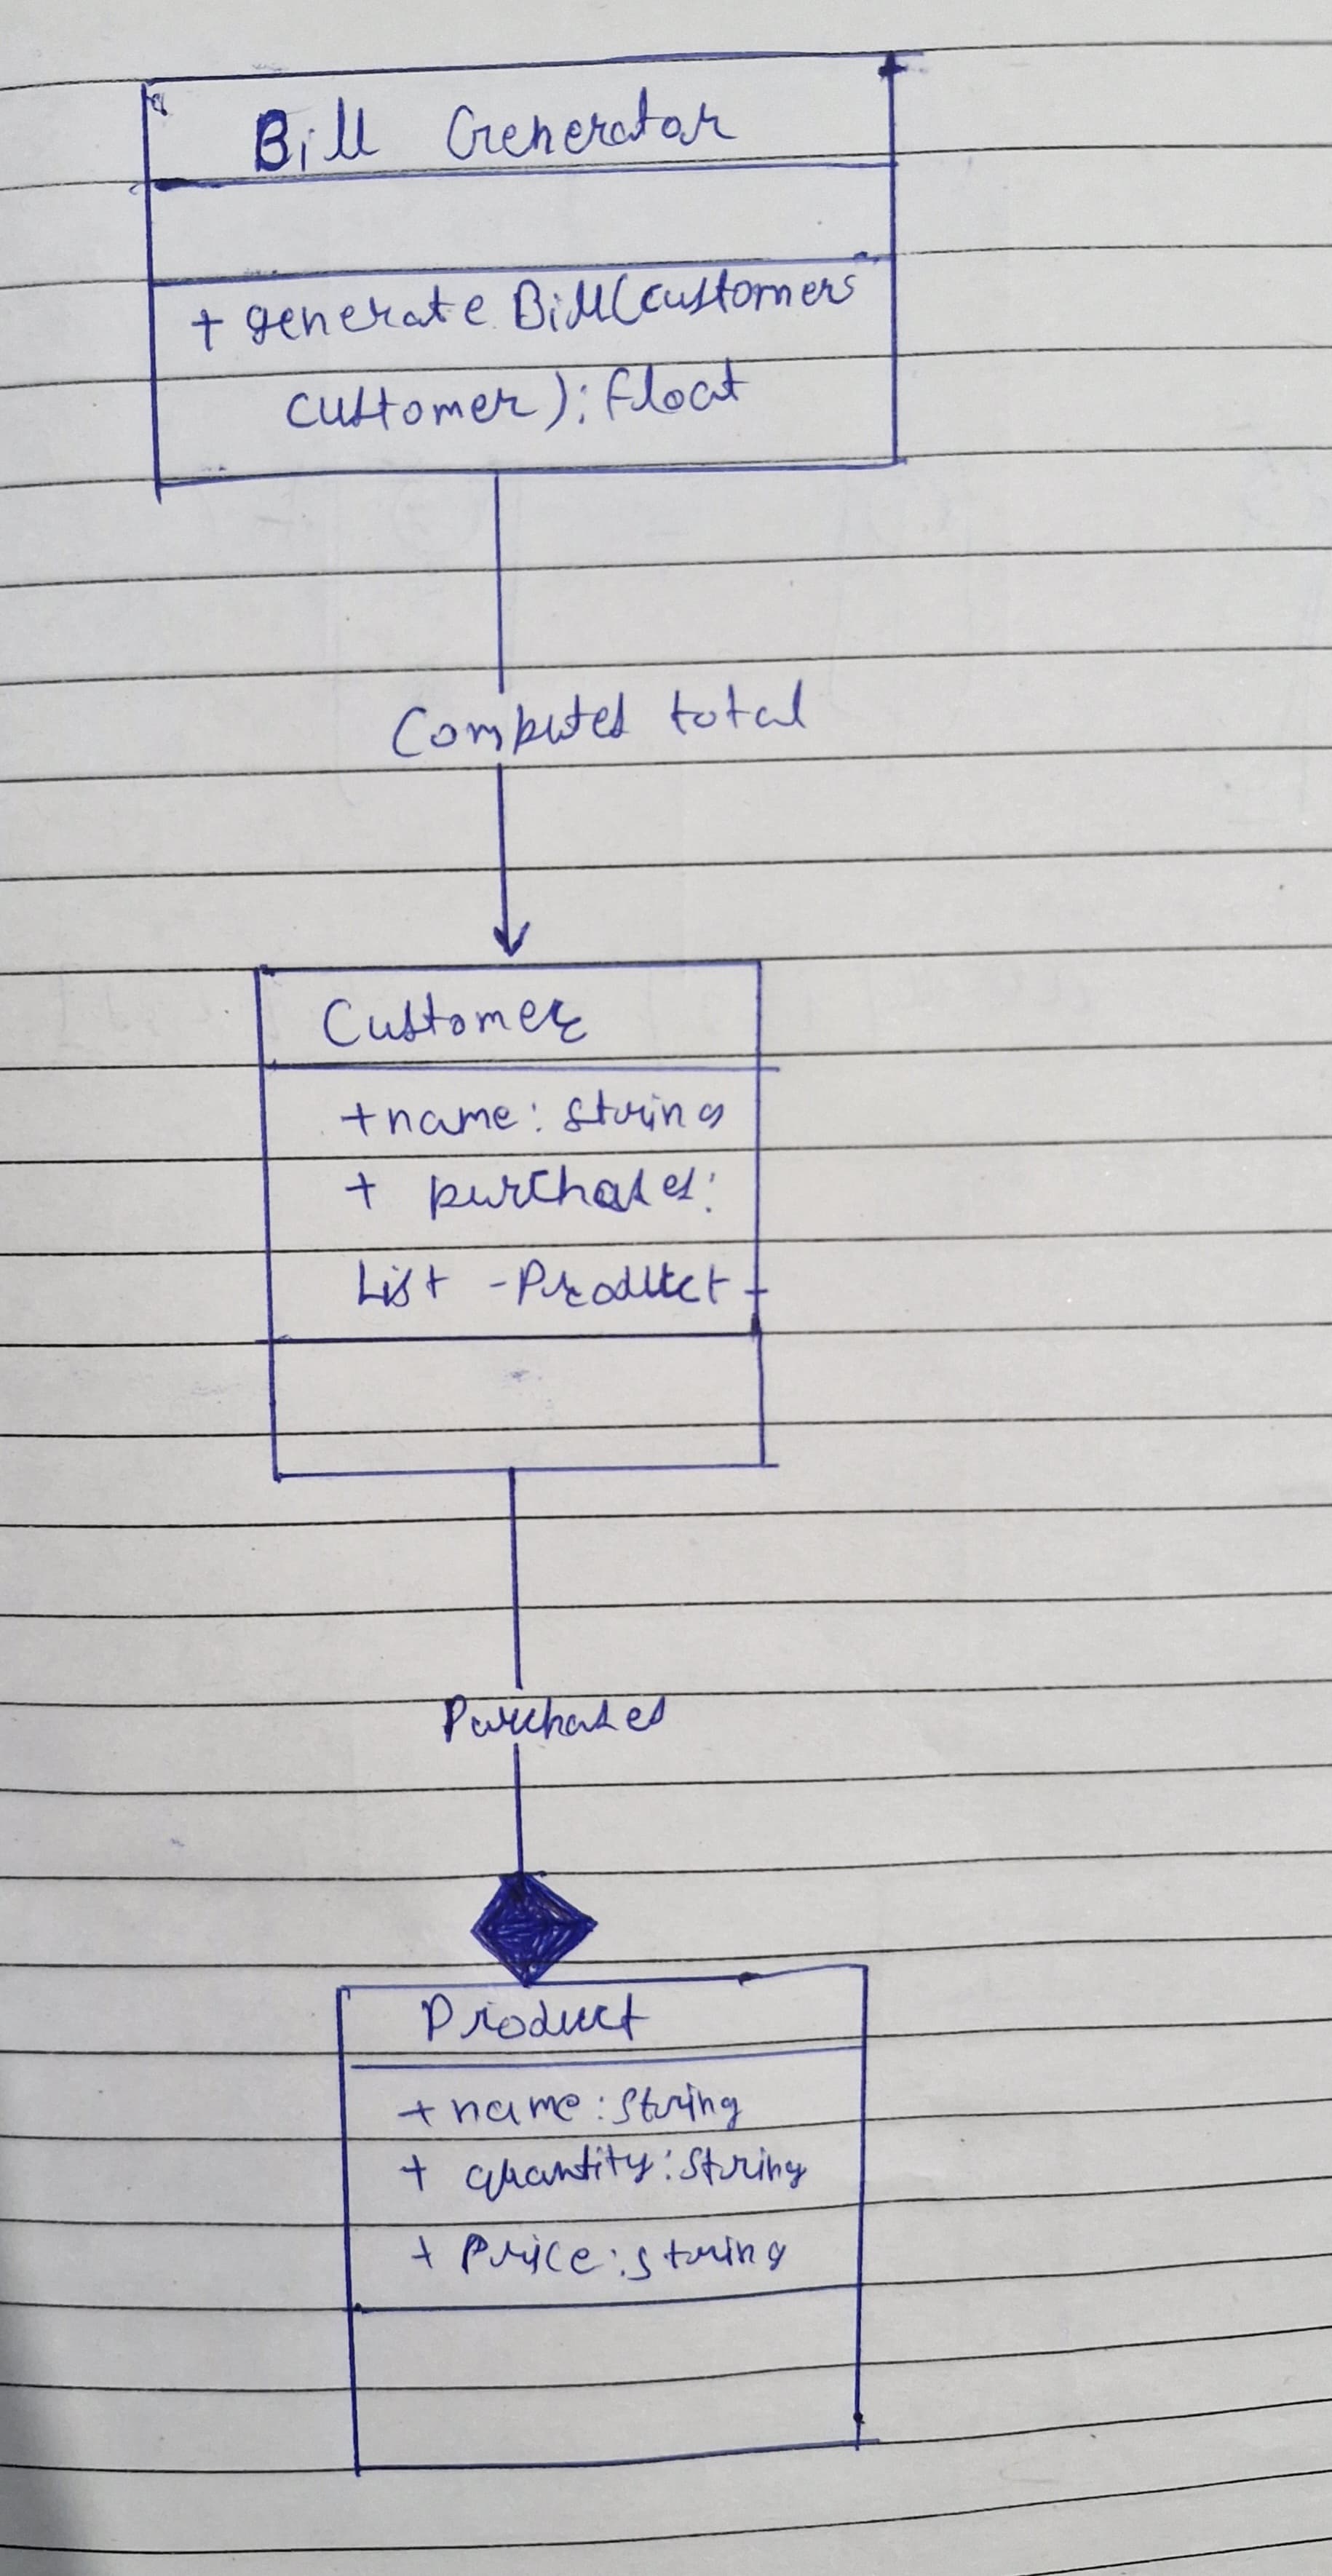 Bill Generator
+ generate Bill(customers
customer): float
Computes total
Customer
+name: string
+ purchases:
List -Product-
Purchases
Product
+ name: string
+ quantity: string
+ Price: string